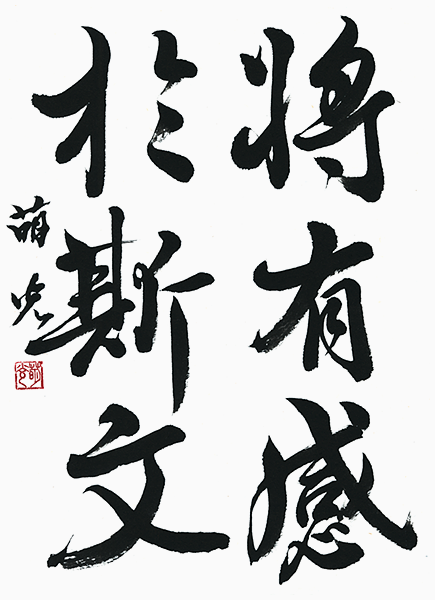 將有感
於斯文
萌